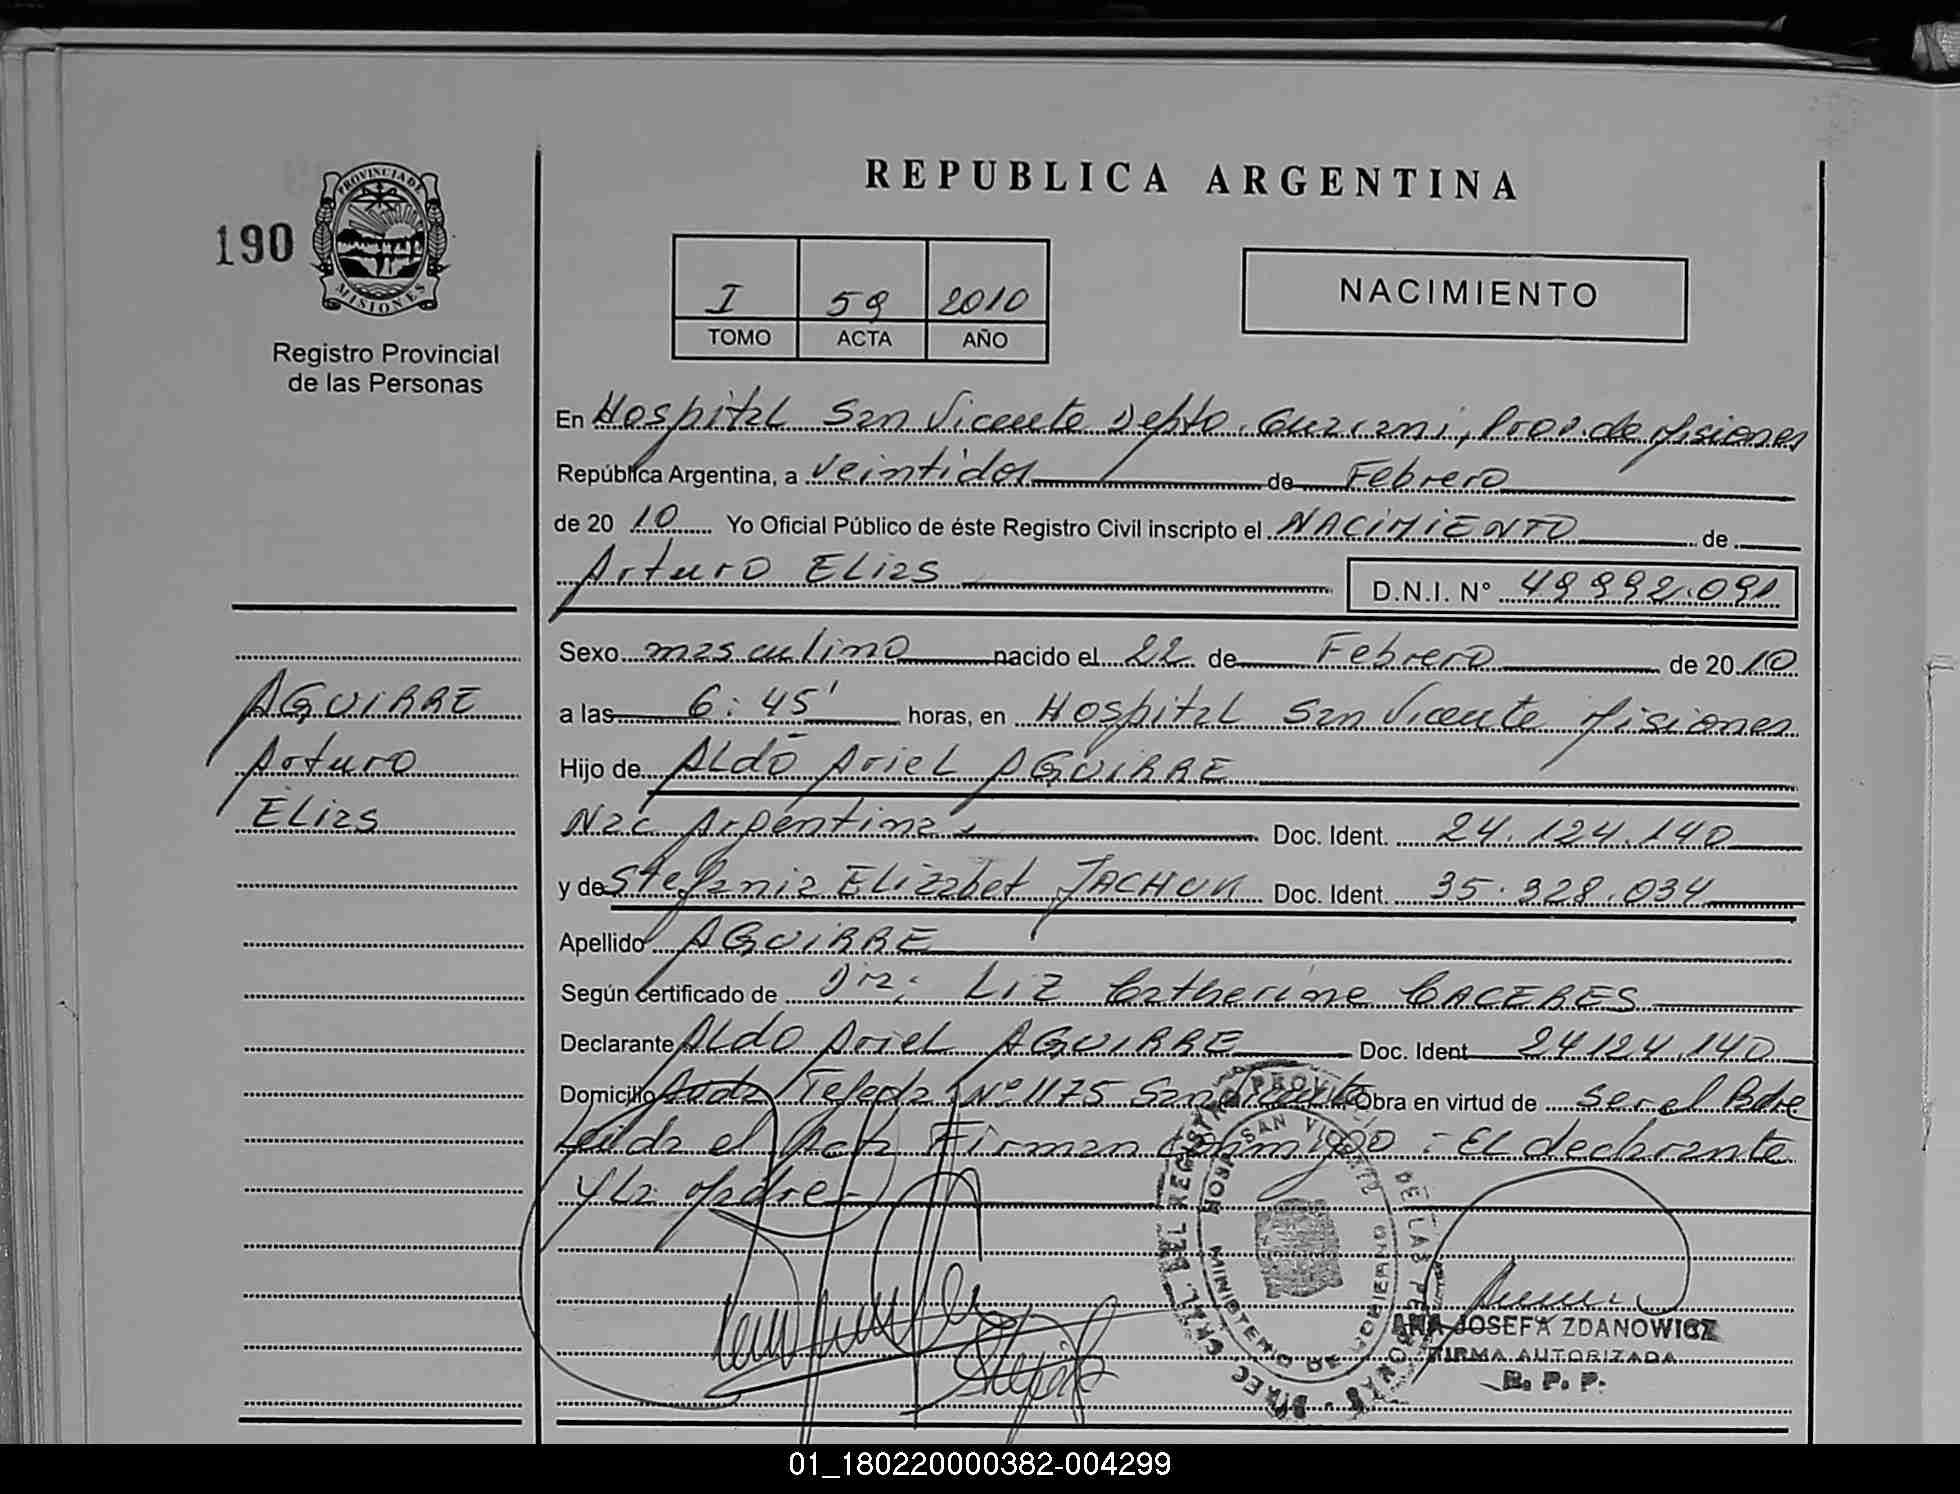 REPUBLICA ARGENTINA
190
PROVINCIA DE
MISIONES
Registro Provincial
de las Personas
I 59 2010
TOMO ACTA AÑO
NACIMIENTO
En Hospital San Vicente Depto. Guarani, Prov. de Misiones
República Argentina, a veintidos de Febrero
de 20 10 Yo Oficial Público de éste Registro Civil inscripto el NACIMIENTO de
Arturo Elias D.N.I. N° 49992.091
Sexo masculino nacido el 22 de Febrero de 20 10
a las 6:45' horas, en Hospital San Vicente Misiones
Hijo de Aldo Ariel AGUIRRE
Nac Argentina Doc. Ident. 24.124.140
y de Stefania Elizabet JACHUK Doc. Ident. 35.328.034
Apellido AGUIRRE
Según certificado de Dra: Liz Catherine CACERES
Declarante Aldo Ariel AGUIRRE Doc. Ident 24124.140
Domicilio Avda Tejeda N° 1175 San Vicente Obra en virtud de ser el Padre
Leida el Acta Firman conmigo: El declarante
y la Madre-
AGUIRRE
Arturo
Elias
HOSP. SAN VICENTE
MINISTERIO DE GOBIERNO
DIREC. GRAL. DEL REGISTRO PROV. DE LAS PERSONAS
ANA JOSEFA ZDANOWICZ
FIRMA AUTORIZADA
R. P. P.
01_180220000382-004299